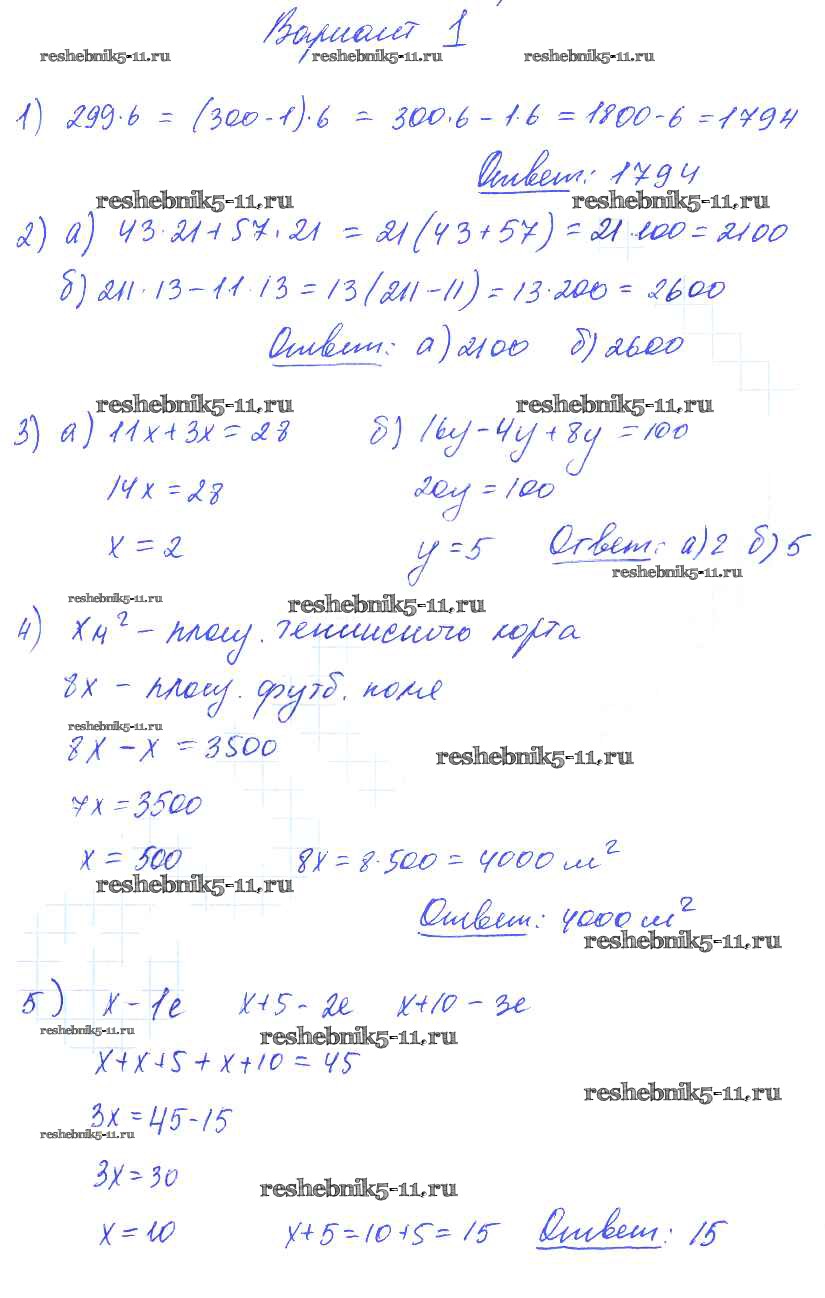 Вариант 1
reshebnik5-11.ru reshebnik5-11.ru reshebnik5-11.ru
1) 299·6 = (300-1)·6 = 300·6 - 1·6 = 1800-6 = 1794
Ответ: 1794
reshebnik5-11.ru reshebnik5-11.ru
2) а) 43·21+57·21 = 21(43+57) = 21·100 = 2100
б) 211·13-11·13 = 13(211-11) = 13·200 = 2600
Ответ: а) 2100 б) 2600
reshebnik5-11.ru reshebnik5-11.ru
3) а) 11x+3x=28 б) 16y-4y+8y=100
14x=28 20y=100
x=2 y=5 Ответ: а) 2 б) 5
reshebnik5-11.ru
reshebnik5-11.ru reshebnik5-11.ru
4) x м² - площ. теннисного корта
8x - площ. футб. поля
reshebnik5-11.ru
8x - x = 3500
reshebnik5-11.ru
7x=3500
x = 500 8x=8·500=4000 м²
reshebnik5-11.ru
Ответ: 4000 м²
reshebnik5-11.ru
5) x - 1е x+5 - 2е x+10 - 3е
reshebnik5-11.ru reshebnik5-11.ru
x+x+5+x+10=45
reshebnik5-11.ru
3x=45-15
reshebnik5-11.ru
3x=30
reshebnik5-11.ru
x=10 x+5=10+5=15 Ответ: 15